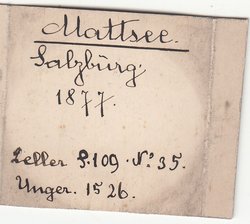 Mattsee.
Salzburg.
1877.
Zeller S. 109. No. 35.
Unger. 1526.